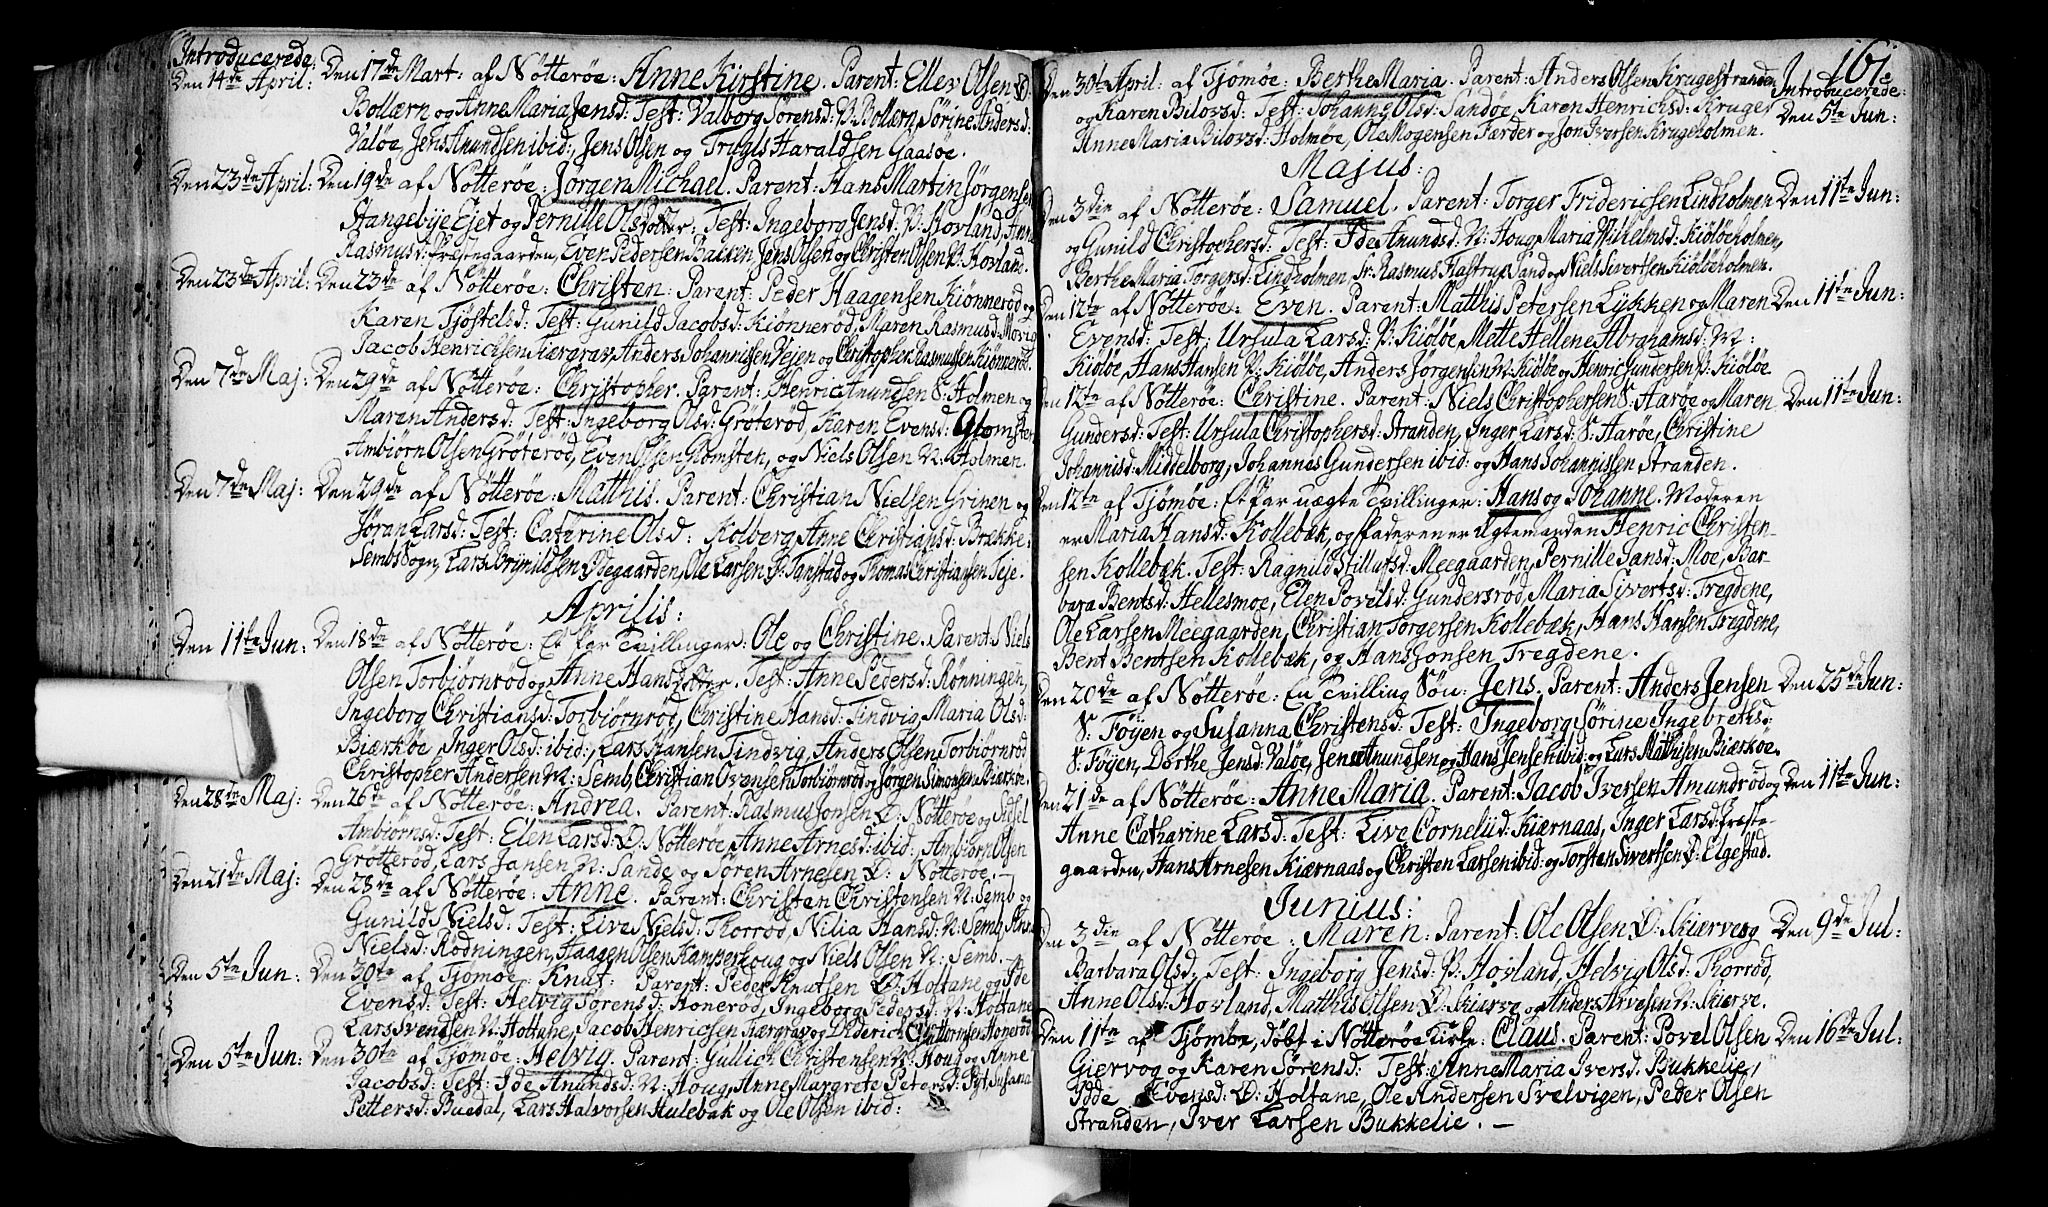 Introducerede:
Den 14de April: Den 17de Mart: af Nötterøe: Anne Kirstine. Parent: Ellev Olsen Ø
Bollærn og Anne Maria Jensd: Test: Valborg Sörensd: V: Bollærn, Sörine Andersd:
Valöe, Jens Anundsen ibid:, Jens Olsen og Trugls Haraldsen Gaasøe.
Den 23de April: Den 19de af Nötterøe: Jörgen Michael. Parent: Hans Martin Jörgensen
Stangebÿe Ejet og Pernille Olsdotter, Test: Ingeborg Jensd: V: Hovland, Anne
Rasmusd: Præstegaarden, Even Pedersen Bakken, Jens Olsen og Christen Olsen V: Hovland.
Den 23de April: Den 23de af Nötterøe: Christen: Parent: Peder Haagensen Kiönneröd og
Karen Tjöstelsd: Test: Gunild Jacobsd: Kiönneröd, Maren Rasmusd: Movig
Jacob Henrichsen Kiærgrav, Anders Johannissen Vejen og Christopher Rasmussen Kiönneröd.
Den 7de Maj: Den 29de af Nötterøe: Christopher. Parent: Henric Anundsen S: Holmen og
Maren Andersd: Test: Ingeborg Olsd: Gröteröd, Karen Evensd: Glomsten
Ambiörn Olsen Gröteröd, Even Olsen Glomsten, og Niels Olsen N: Holmen.
Den 7de Maj: Den 29de af Nötterøe: Matthis. Parent: Christian Nielsen Grinen og
Jöran Larsd: Test: Cathrine Olsd: Kolberg, Anne Christiansd: Brække
Sembs Sogn, Lars Brÿnildsen Ödegaarden, Ole Larsen Ø: Tanstad og Thomas Christiansen Teje.
Aprilis:
Den 11te Jun: Den 18de af Nötterøe: Et Par Tvillinger: Ole og Christine. Parent: Niels
Olsen Torbiörnröd og Anne Hansdotter. Test: Anne Pedersd: Rönningen,
Ingeborg Christiansd: Torbiörnröd, Christine Hansd: Tindvig, Maria Olsd:
Biærkøe, Inger Olsd: ibid:, Lars Hansen Tindvig, Anders Olsen Torbiörnröd
Christopher Andersen N: Semb, Christian Svensen Torbiörnröd og Jörgen Simonsen Biærkøe.
Den 28de Maj: Den 26de af Nötterøe: Andrea. Parent: Rasmus Jonsen Ø: Nötterøe og Sidsel
Ambiörnsd: Test: Elen Larsd: Ø: Nötterøe, Anne Arnesd: ibid: Ambiörn Olsen
Grötteröd, Lars Jansen N: Sande og Sören Arnesen Ø: Nötterøe.
Den 21de Maj: Den 28de af Nötterøe: Anne. Parent: Christen Christensen N: Semb og
Gunild Nielsd: Test: Live Nielsd: Thorröd, Nilia Hansd: N: Semb, Anne
Nielsd: Rödningen, Haagen Olsen Kamperhoug og Niels Olsen N: Semb.
Den 5te Jun: Den 30te af Tjömøe Knut: Parent: Peder Knutsen Ø: Holtane og Ide
Evensd: Test: Helvig Sörensd: Honeröd, Ingeborg Pedersd: N: Holtane
Lars Svendsen N: Holtane, Jacob Henricsen Kiærgrav og Diderich Cathrinsen Honeröd
Den 5te Jun: Den 30te af Tjömøe: Helvig. Parent: Gullich Christensen V: Houg og Anne
Jacobsd: Test: Ide Anundsd: N: Houg, Anne Margrete Petersd: Pyt, Susana
Pettersd: Buedal, Lars Halvorsen Hulebak og Ole Olsen ibid:
161.
30te April: af Tjömøe: Berthe Maria. Parent: Anders Olsen Krugestranden Introducerede:
og Karen Bilovsd: Test: Johanne Olsd: Sandøe, Karen Henrichsd: Kruger Den 5te Jun:
Anne Maria Bilovsd: Holmøe, Ole Mogensen Færder og Jon Iversen Krugeholmen.
Majus:
Den 3die af Nötterøe: Samuel. Parent: Torger Fridericsen Lindholmen Den 11te Jun:
og Gunild Christophersd: Test: Ide Anundsd: N: Houg, Maria Wilhelmsd: Kiölöeholmen,
Berthe Maria Torgersd: Lindholmen, Sr. Rasmus Flastrup Sand og Niels Sivertsen Kiölöeholmen.
Den 12te af Nötterøe: Even. Parent: Matthis Petersen Lÿkken og Maren Den 11te Jun:
Evensd: Test: Ursula Larsd: V: Kiölöe, Mette Hellene Abrahamsd: N:
Kiölöe, Hans Hansen V: Kiölöe, Anders Jörgensen N: Kiölöe og Henric Gundersen V: Kiölöe
Den 12te af Nötterøe: Christine. Parent: Niels Christophersen S: Aarøe og Maren Den 11te Jun:
Gundersd: Test: Ursula Christophersd: Stranden, Inger Larsd: S: Aarøe, Christine
Johannisd: Middelborg, Johannes Gundersen ibid: og Hans Johannissen Stranden.
Den 12te af Tjömøe: Et Par uægte Tvillinger: Hans og Johanne. Moderen
er Maria Hansd: Kollebæk, og Faderen er Ægtemanden Henric Christen-
sen Kollebæk. Test: Ragnild Stillufsd: Meegaarden, Pernille Jansd: Moe, Bar-
bara Bentsd: Hellesmoe, Elen Povelsd: Gundersröd, Maria Sivertsd: Tregdene,
Ole Larsen Meegaarden, Christian Torgersen Kollebæk, Hans Hansen Tregdene,
Bent Bentsen Kollebæk, og Hans Jonsen Tregdene.
Den 20de af Nötterøe: En Tvilling Sön: Jens. Parent: Anders Jensen Den 25de Jun:
S: Föÿen og Susanna Christensd: Test: Ingeborg Sörine Ingebrethsd:
S: Föÿen, Dorthe Jensd: Valöe, Jens Anundsen og Hans Jensen ibid: og Lars Mathisen Biærkøe.
Den 21de af Nötterøe: Anne Maria. Parent: Jacob Iversen Amundröd og Den 11te Jun:
Anne Catharine Larsd: Test: Live Cornelii d: Kiærnaas, Inger Larsd: Præste-
gaarden, Hans Arnesen Kiærnaas og Christen Larsen ibid: og Torsten Sivertsen Ø: Elgestad.
Junius:
Den 3die af Nötterøe: Maren: Parent: Ole Olsen Ø: Skierve og Den 9de Jul:
Barbara Olsd: Test: Ingeborg Jensd: V: Hovland, Helvig Olsd: Thorröd,
Anne Olsd: Hovland, Matthis Olsen Ø: Skierve og Anders Arvesen N: Skierve.
Den 11te af Tjömøe, döbt i Nötterøe Kirke: Claus. Parent: Povel Olsen Den 16de Jul:
Giervog og Karen Sörensd: Test: Anne Maria Iversd: Bukkelie,
Ydde Evensd: Ø: Holtane, Ole Andersen Svelvigen, Peder Olsen
Stranden, Iver Larsen Bukkelie. —